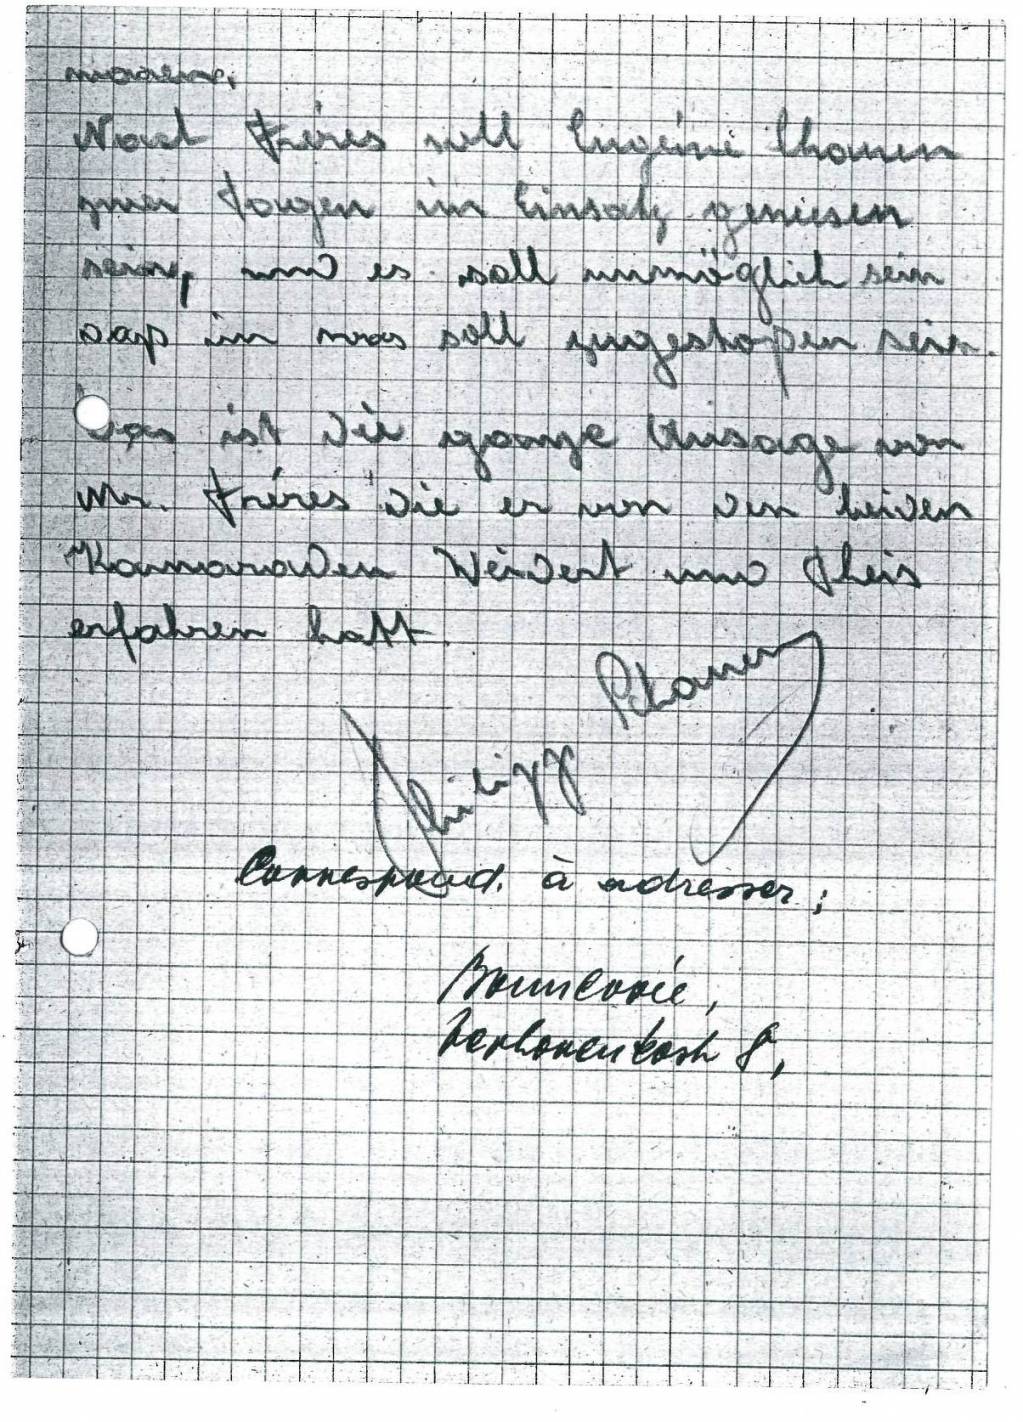 waren.
Nach Fréres soll Eugéne Thomen
zwei Tagen im Einsatz gewesen
sein, und es soll unmöglich sein
das im was soll zugestosen sein.
Das ist die ganze Aussage von
Mr. Fréres die er von den beiden
Kamaraden Weidert und Theis
erfahren hatt.
Philipp
Correspond. à adresser: